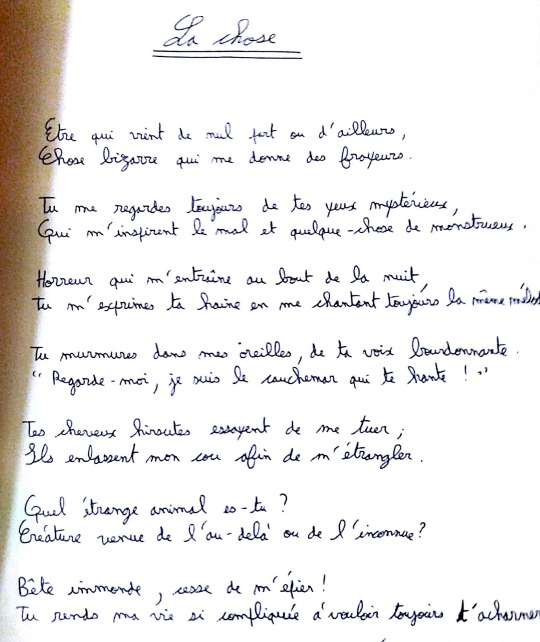 La chose
Etre qui vient de nul part ou d'ailleurs,
Chose bizarre qui me donne des frayeurs.
Tu me regardes toujours de tes yeux mystérieux,
Qui m'inspirent le mal et quelque-chose de monstrueux.
Horreur qui m'entraîne au bout de la nuit,
Tu m'exprimes ta haine en me chantant toujours la même
Tu murmures dans mes oreilles, de ta voix bourdonnante.
"Regarde-moi, je suis le cauchemar qui te hante !"
Tes cheveux hirsutes essayent de me tuer;
Ils enlassent mon cou afin de m'étrangler.
Quel étrange animal es-tu ?
Créature venue de l'au-delà ou de l'inconnue?
Bête immonde, cesse de m'épier!
Tu rends ma vie si compliquée à vouloir toujours t'acharner